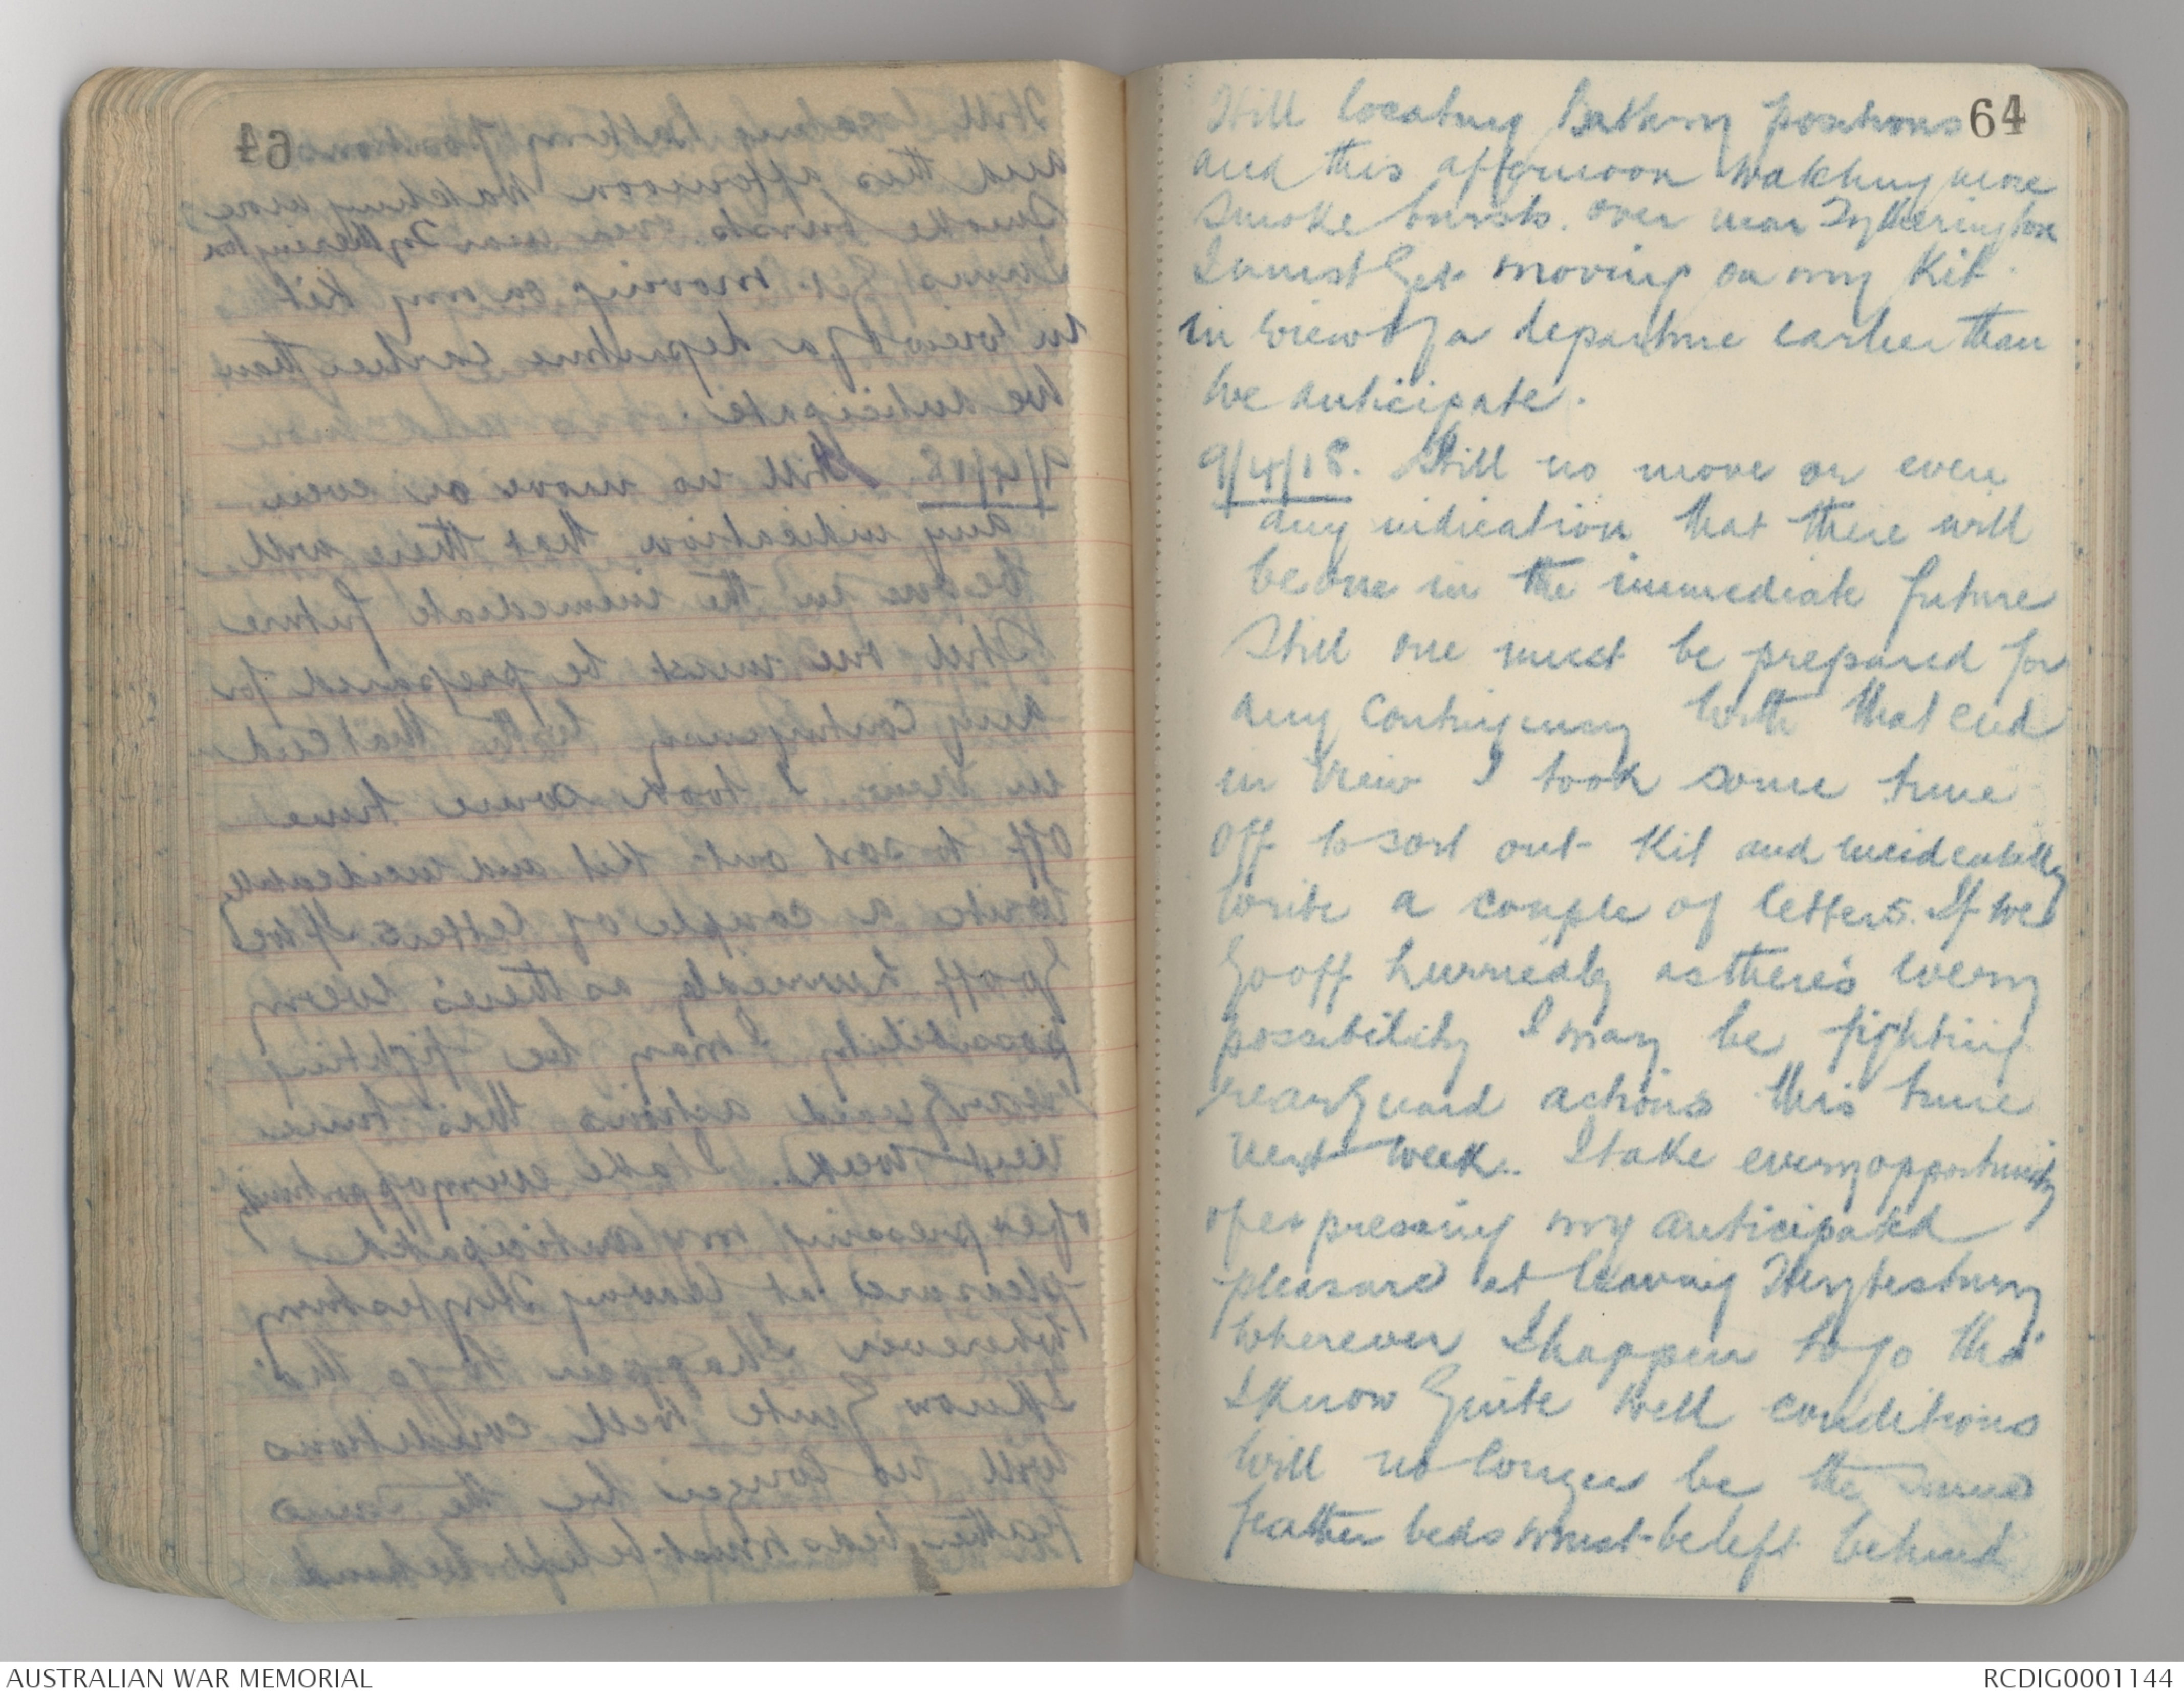 64
Still locating Battery positions
and this afternoon watching more
smoke bursts. over near Tytherington
I must get moving on my Kit
in view of a departure earlier than
we anticipate.
9/4/18. Still no move or even
any indication that there will
be one in the immediate future
Still one must be prepared for
any contingency with that end
in view I took some time
off to sort out Kit and incidentally
write a couple of letters. If we
go off hurriedly as there's every
possibility I may be fighting
rearguard actions this time
next week.. I take every opportunity
of expressing my anticipated
pleasure at leaving Heytesbury
wherever I happen to go tho'
I know quite well conditions
will no longer be the same
feather beds must be left behind
AUSTRALIAN WAR MEMORIAL
RCDIG0001144